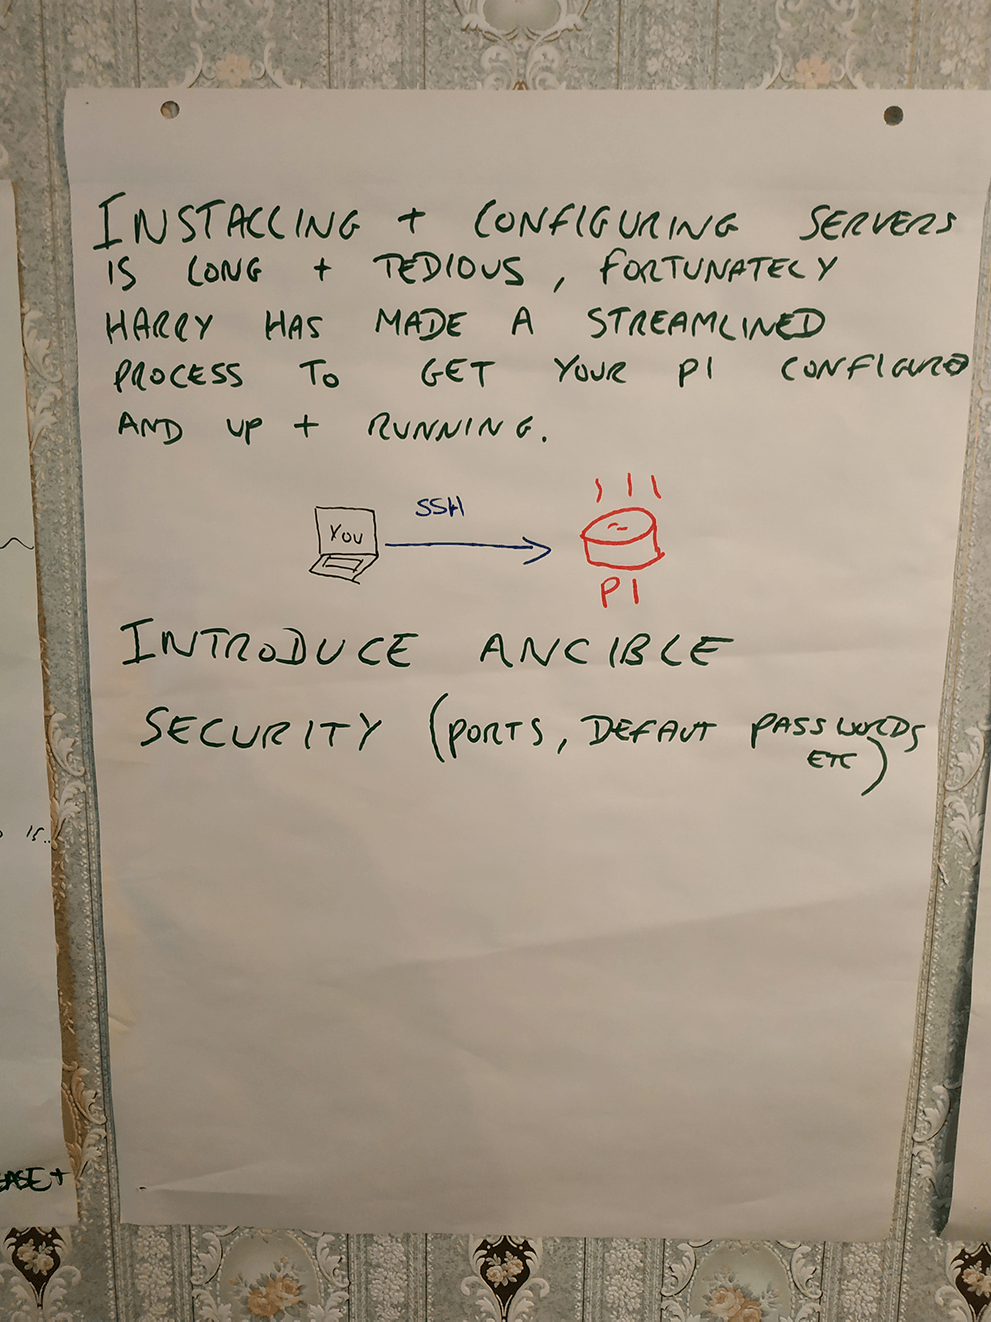 INSTALLING + CONFIGURING SERVERS
IS LONG + TEDIOUS, FORTUNATELY
HARRY HAS MADE A STREAMLINED
PROCESS TO GET YOUR PI CONFIGURD
AND UP + RUNNING.
SSH
YOU
PI
INTRODUCE ANCIBLE
SECURITY (PORTS, DEFAUT PASSWORDS
ETC)
IS..